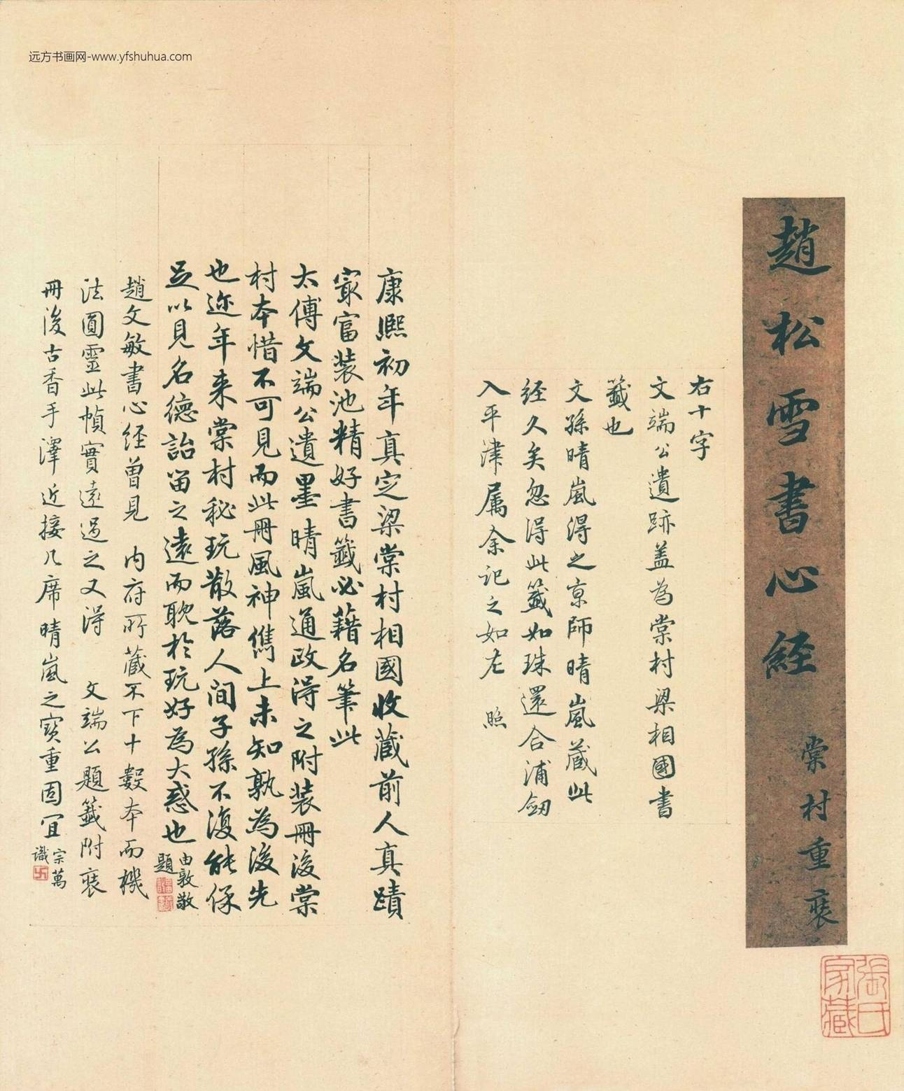 远方书画网-www.yfshuhua.com
趙松雪書心經
棠村重裘
右十字
文端公遺跡盖為棠村梁相國書
籤也
文孫晴嵐得之京師晴嵐蔵此
经久矣忽得此籤如珠還合浦劒
入平津属余记之如左 照
康熙初年真定梁棠村相國收蔵前人真蹟
寂富装池精好書籤必藉名筆此
太傅文端公遺墨晴嵐通政得之附装冊後棠
村本惜不可見而此冊風神儁上未知孰為後先
也迩年来棠村秘玩散落人间子孫不復能保
足以見名德詒留之遠而耽於玩好為大惑也
由敦敬
題
趙文敏書心经曾見 内府所蔵不下十數本而機
法圓靈此幀實遠過之又得 文端公題籤附裘
冊後古香手澤近接几席晴嵐之寳重固宜
宗萬
識
張氏家藏